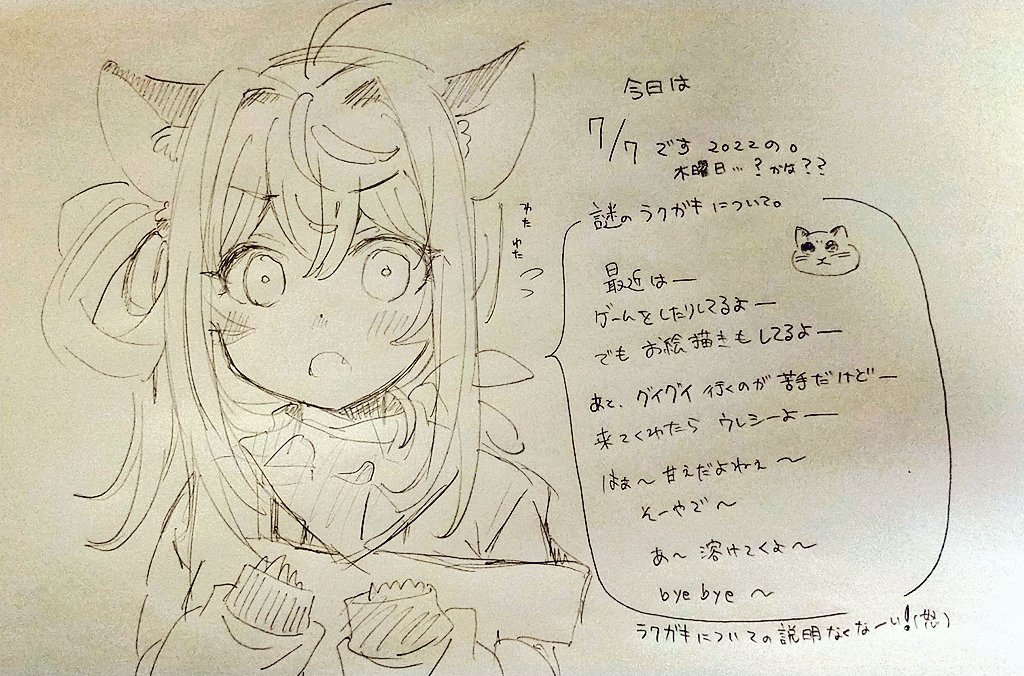 今日は
7/7 です 2022の。
木曜日…?かな??
わた わた
謎のラクガキについて。
最近はー
ゲームをしたりしてるよー
でも お絵描きもしてるよー
あと、グイグイ 行くのが 苦手だけどー
来てくれたら ウレシーよー
はぁ〜 甘えだよねぇ 〜
そーやで 〜
あ〜 溶けてくよ 〜
bye bye 〜
ラクガキについての説明なくなーい!(怒)